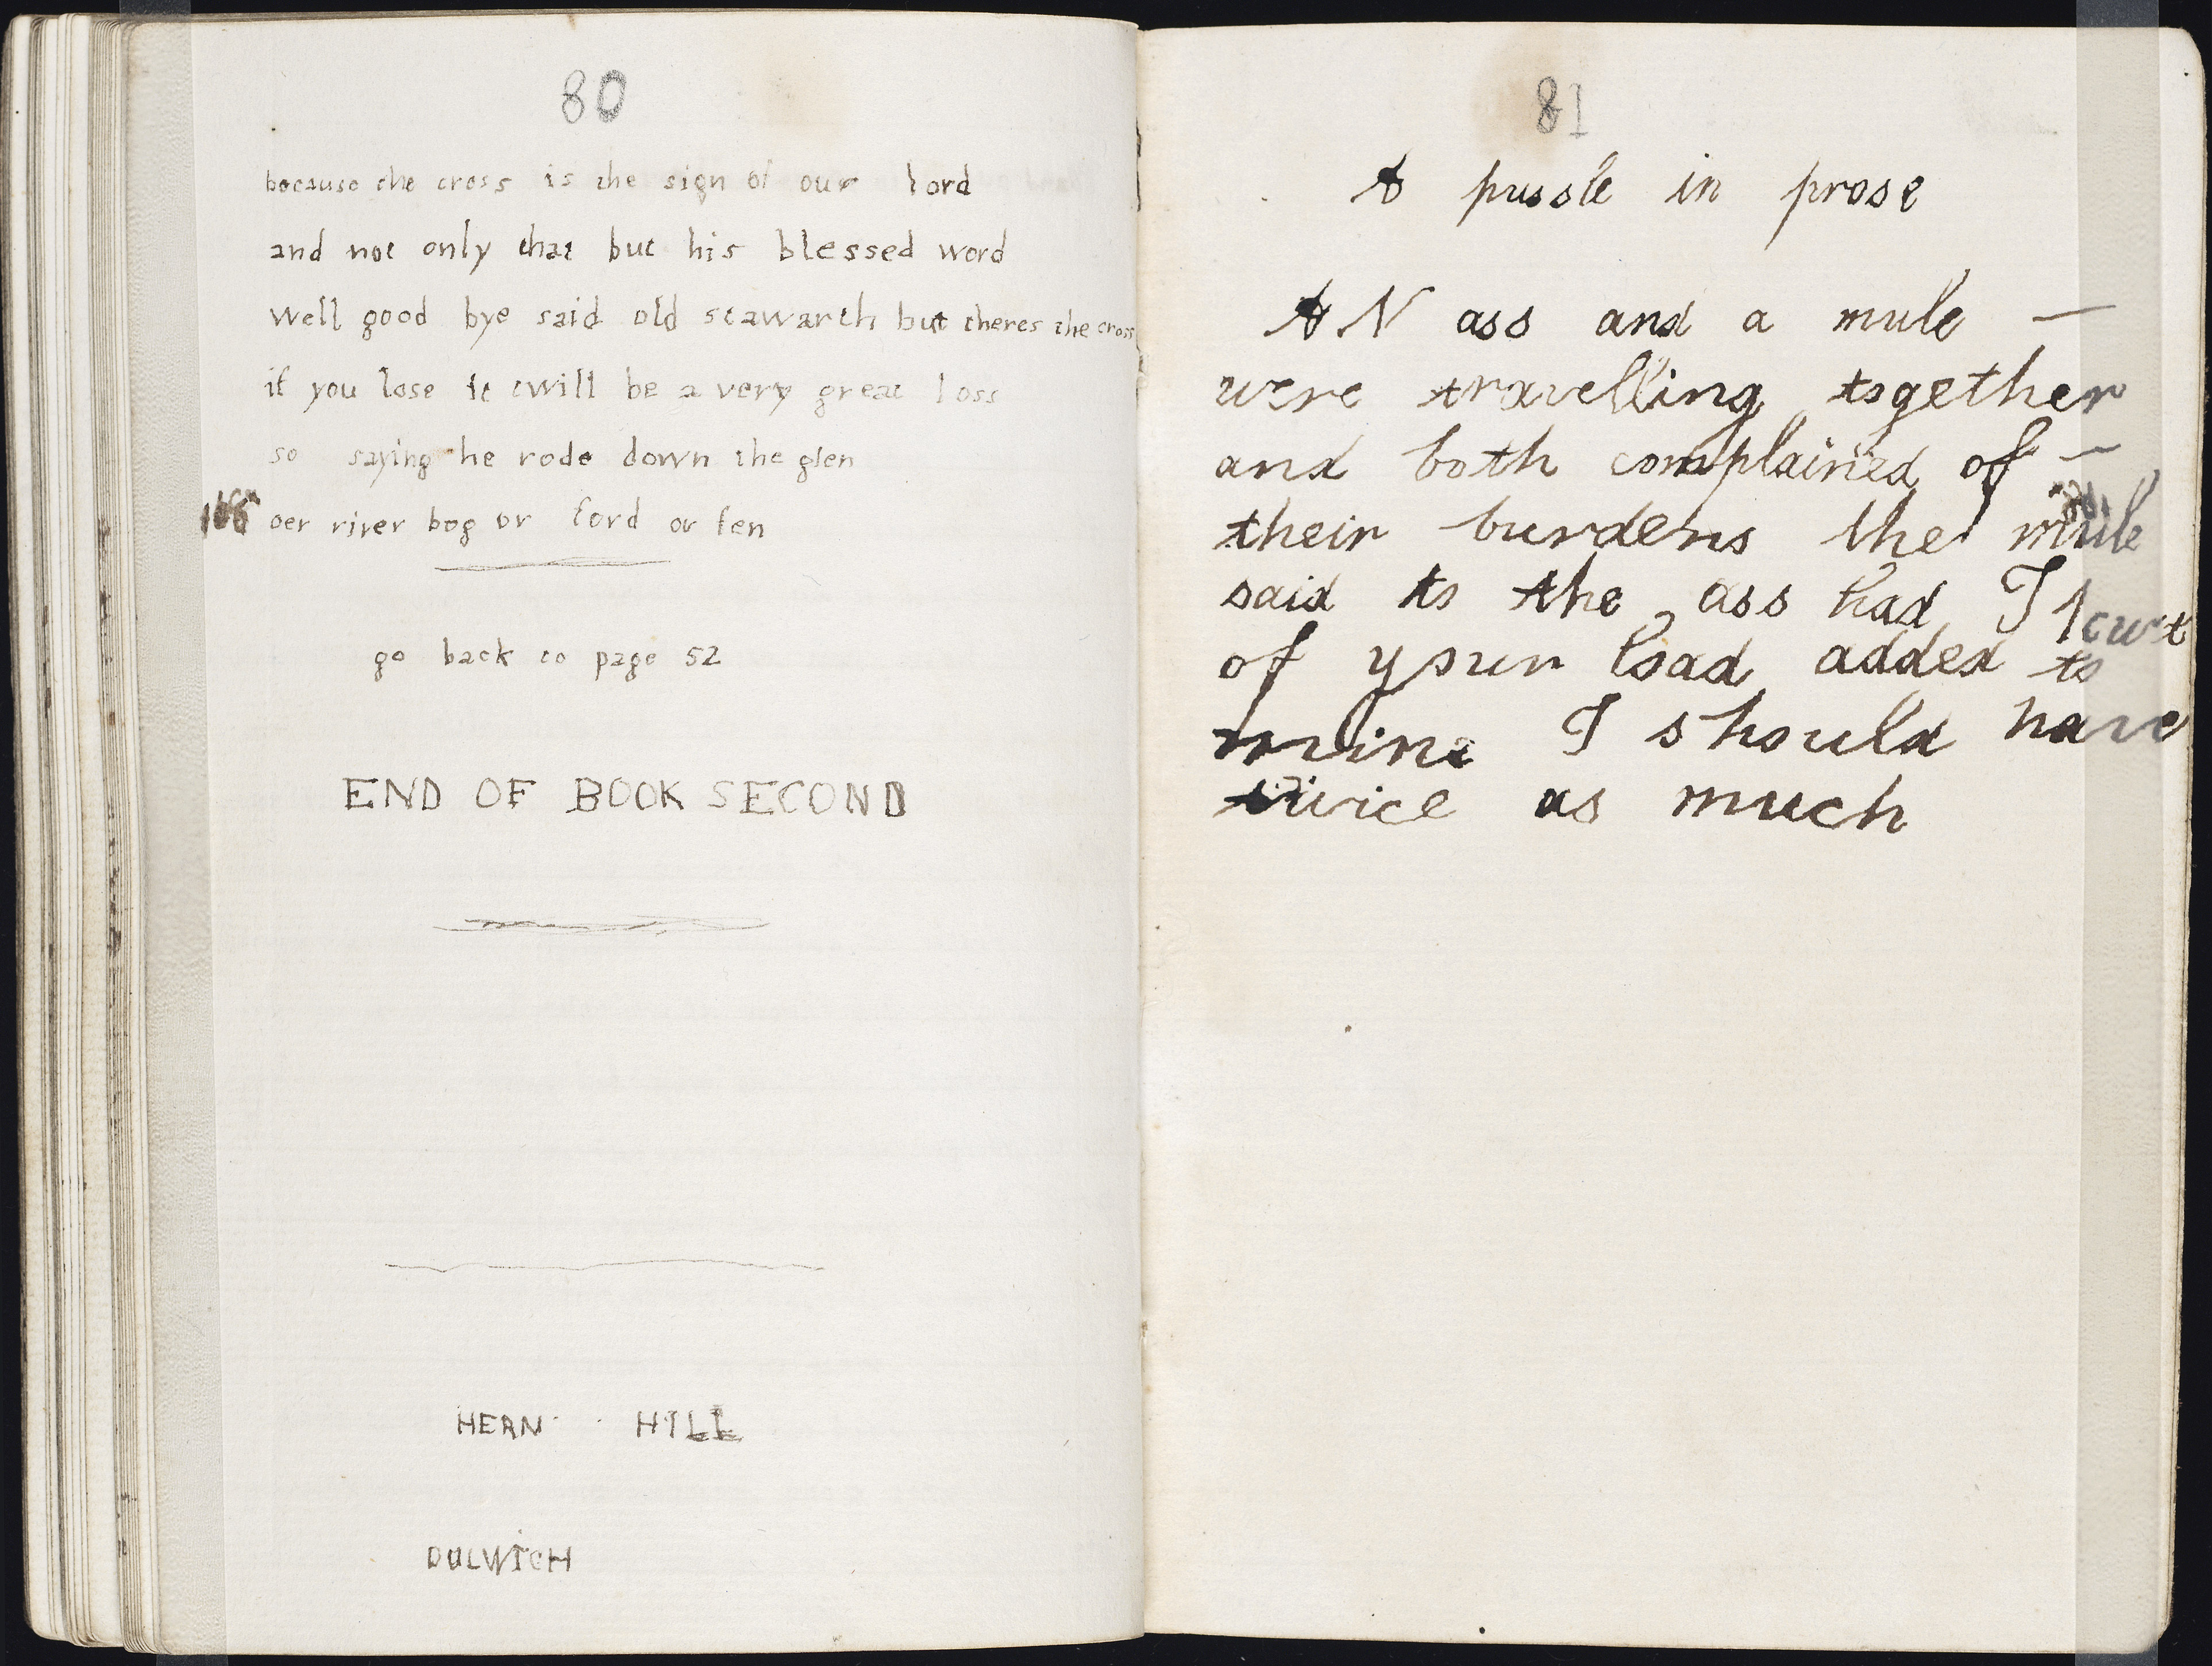 80
because the cross is the sign of our lord
and not only that but his blessed word
well good bye said old stawarth but theres the cross
if you lose it twill be a very great loss
so saying he rode down the glen
oer river bog or ford or fen
go back to page 52
END OF BOOK SECOND
HERN HILL
DULWICH
81
A pussle in prose
AN ass and a mule —
were travelling together
and both complained of —
their burdens the mule
said to the ass had I 1 cwt
of your load added to
mine I should have
twice as much